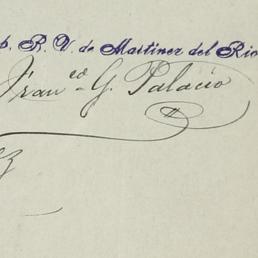 p. R. V. de Martinez del Rio
Fran.co G. Palacio